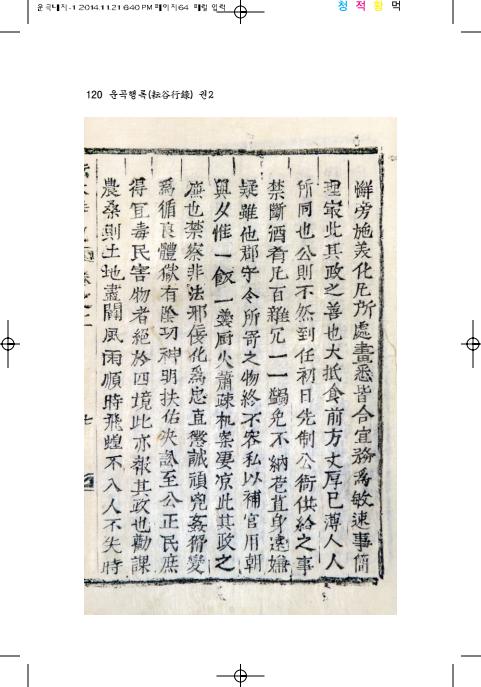 운곡대지-1 2014.11.21 6:40 PM 페이지64 매킬 입력
청 적 황 먹
120 운곡행록(耘谷行錄) 권2
懈旁施義化凡所處畫悉皆合宜務爲敏速事簡
理最此其政之善也大抵食前方丈厚己薄人人
所同也公則不然到任初日先制公衙供給之事
禁斷酒肴凡百雜冗一一蠲免不納苞苴身遠嫌
疑雖他郡守令所寄之物終不容私以補官用朝
與夕惟一飯一羹厨火蕭疎机案凄凉此其政之
廉也禁察非法邪侫化爲忠直懲誡頑兇姦猾變
爲循良體獄有陰功神明扶佑決訟至公正民庶
得宜毒民害物者絕於四境此亦報其政也勸課
農桑則土地盡闢風雨順時飛蝗不入人不失時
七